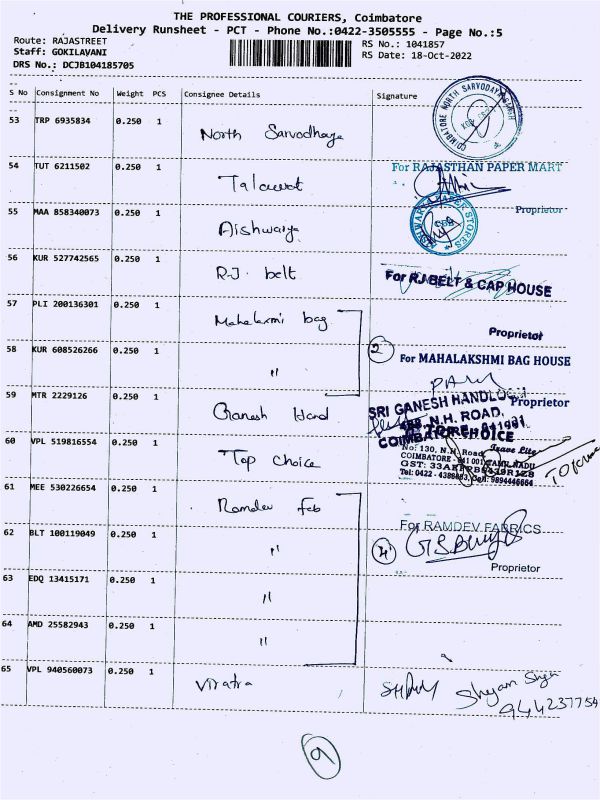 THE PROFESSIONAL COURIERS, Coimbatore
Delivery Runsheet - PCT - Phone No.:0422-3505555 - Page No.:5
Route: RAJASTREET
Staff: GOKILAVANI
DRS No.: DCJB104185705
RS No.: 1041857
RS Date: 18-Oct-2022
S No Consignment No Weight PCS Consignee Details Signature
53 TRP 6935834 0.250 1 North Sarvodhaya
COIMBATORE NORTH SARVODAYA
54 TUT 6211502 0.250 1 Talawat
For RAJASTHAN PAPER MART
Proprietor
55 MAA 858340073 0.250 1 Aishwarya
STORES
56 KUR 527742565 0.250 1 R.J. belt
For RJ BELT & CAP HOUSE
Proprietor
57 PLI 200136301 0.250 1 Mahalaxmi bag
58 KUR 608526266 0.250 1 "
2 For MAHALAKSHMI BAG HOUSE
Proprietor
59 MTR 2229126 0.250 1 Ganesh Hand
SRI GANESH HANDLOOM
N.H. ROAD,
COIMBATORE
60 VPL 519816554 0.250 1 Top choice
TOP CHOICE
No: 130, N.H. Road,
COIMBATORE - 641 001 TAMIL NADU
61 MEE 530226654 0.250 1 Ramdev Feb
For RAMDEV FABRICS
62 BLT 100119049 0.250 1 "
4
Proprietor
63 EDQ 13415171 0.250 1 "
64 AMD 25582943 0.250 1 "
65 VPL 940560073 0.250 1 Viratra
Shyam
9